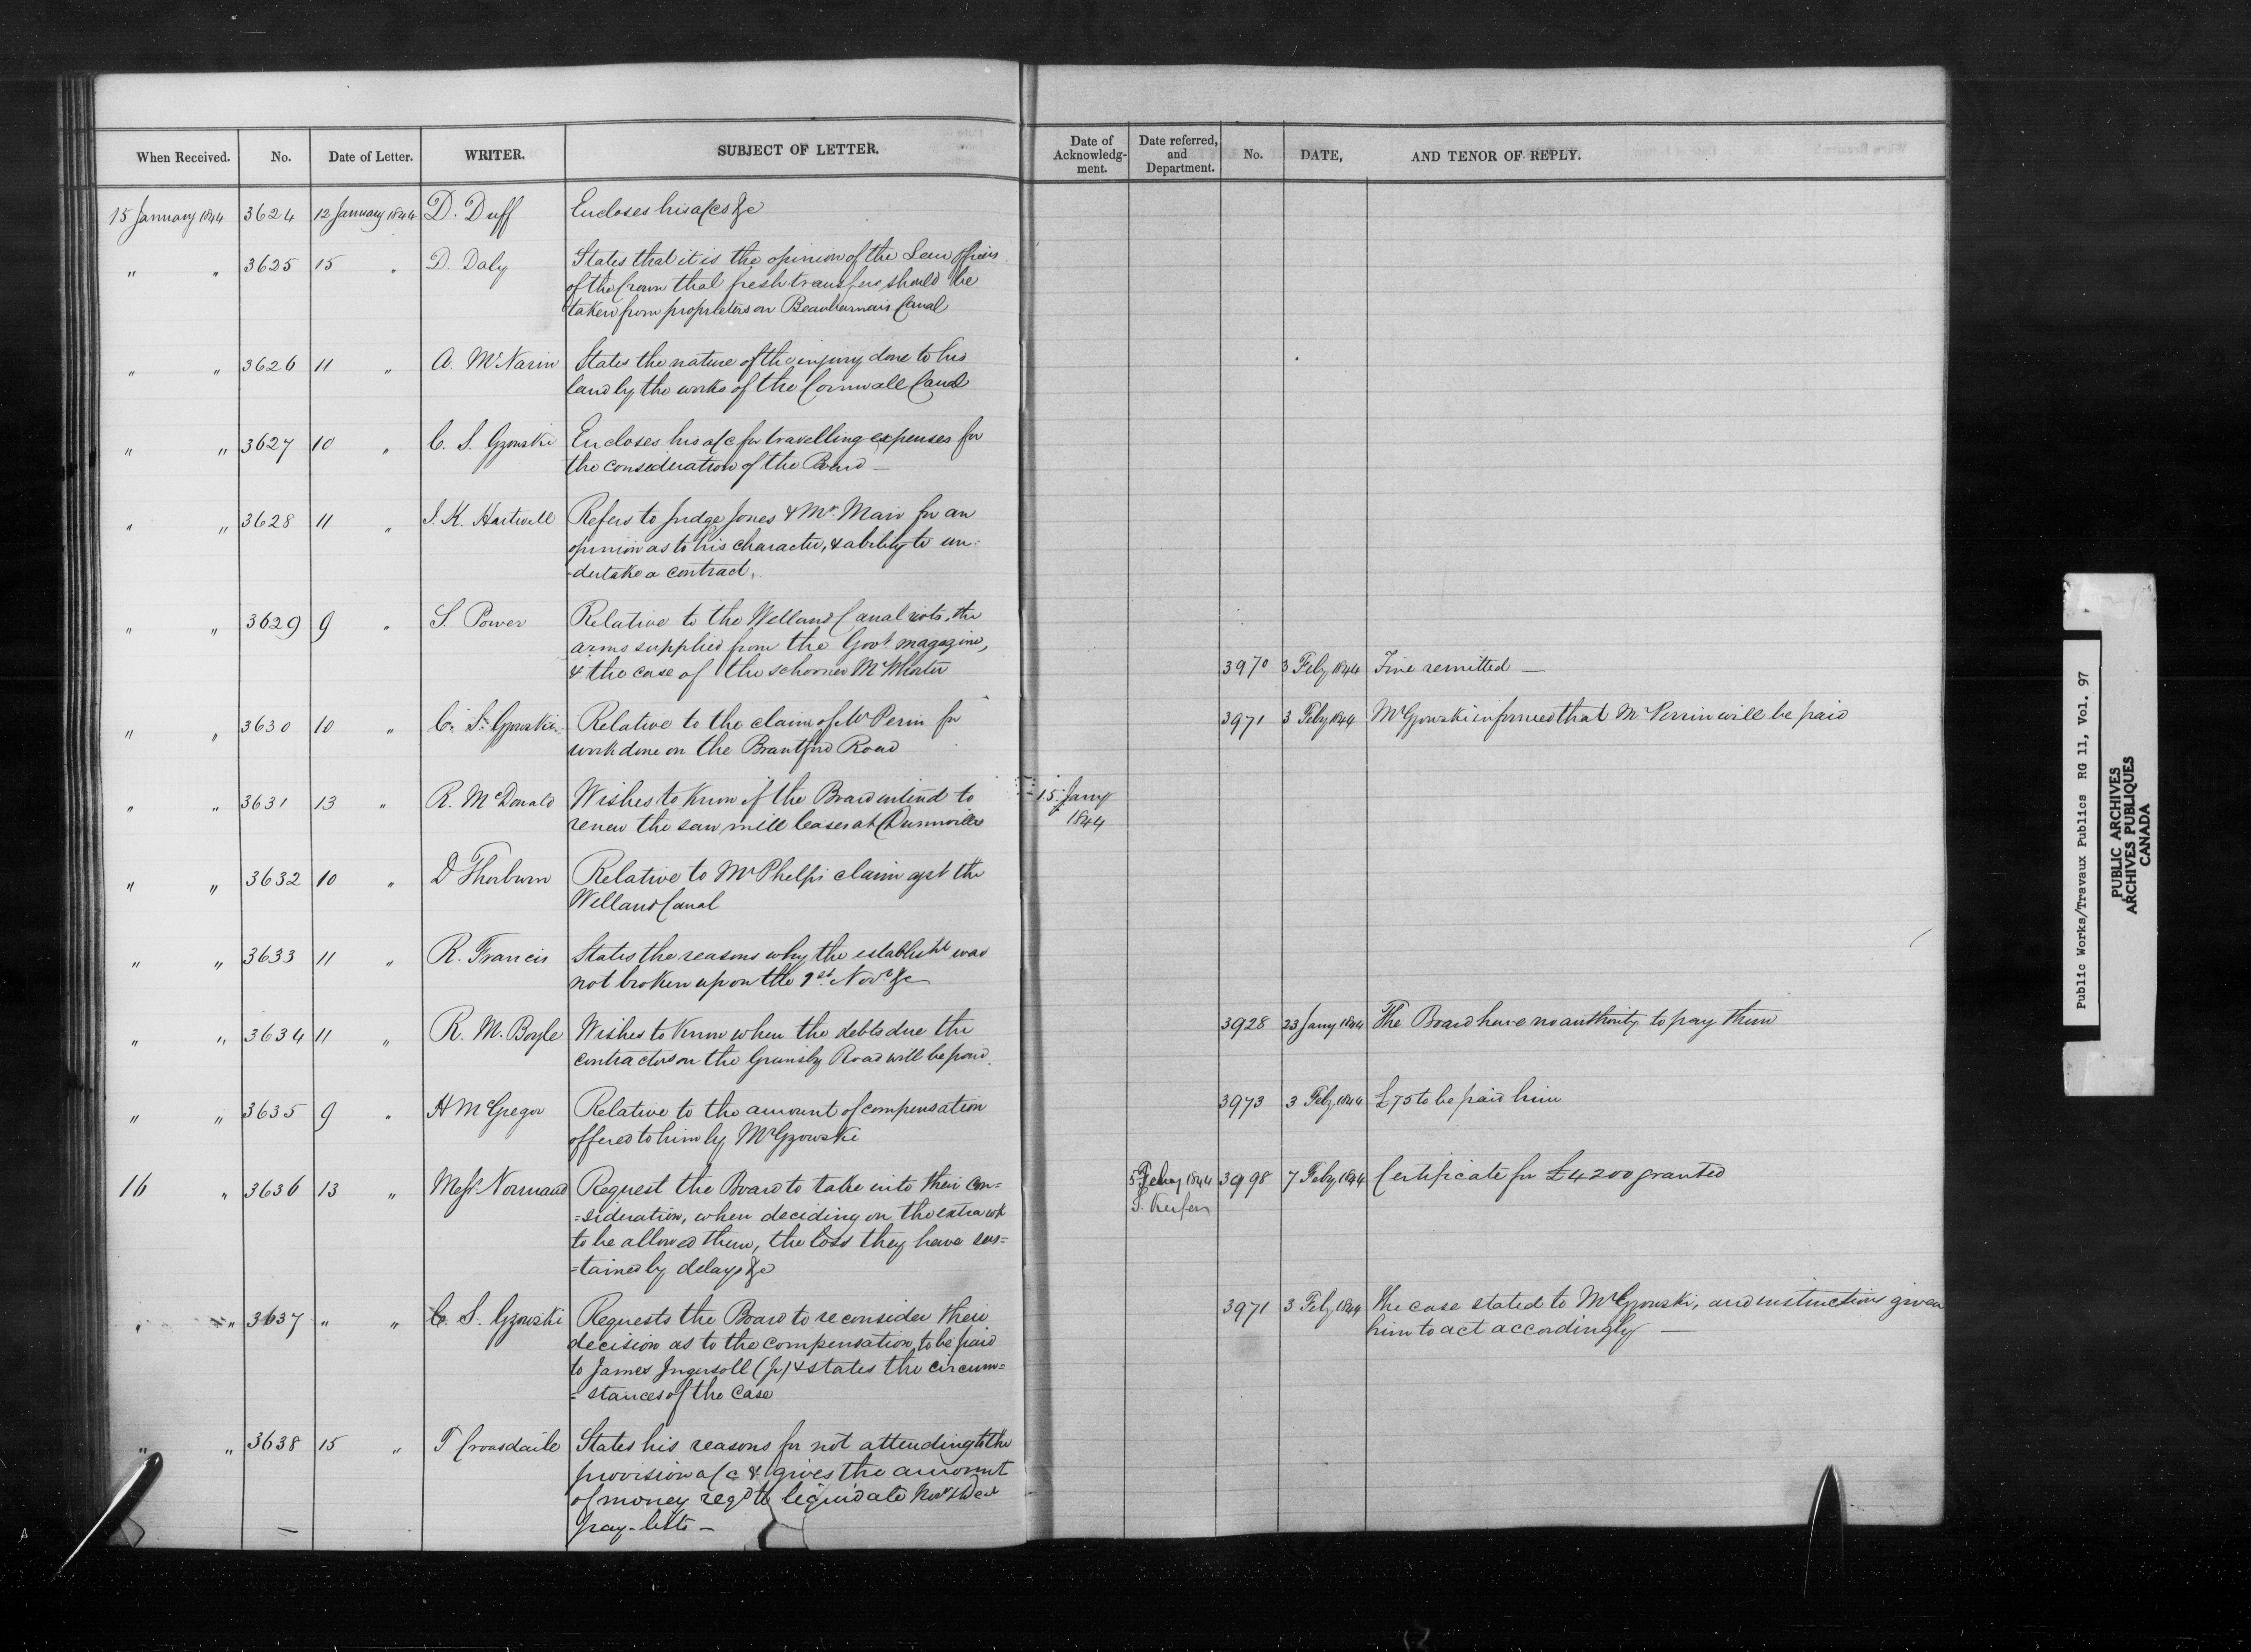 When Received. No. Date of Letter. WRITER. SUBJECT OF LETTER. Date of Acknowledg-ment. Date referred, and Department. No. DATE, AND TENOR OF REPLY.
15 January 1844 3624 12 January 1844 D. Duff Encloses his a/cs &c
" " 3625 15 " D. Daly States that it is the opinion of the Law Officers
of the Crown that fresh transfers should be
taken from proprietors on Beauharnais Canal
" " 3626 11 " A. McNarin States the nature of the injury done to his
land by the works of the Cornwall Canal
" " 3627 10 " C. S. Gzowski Encloses his a/c for travelling expenses for
the consideration of the Board —
" " 3628 11 " J. K. Hartwell Refers to Judge Jones & Mr. Mair for an
opinion as to his character, & ability to un:
-dertake a contract.
" " 3629 9 " S. Power Relative to the Welland Canal riots, the
arms supplied from the Govt magazine,
& the case of the schooner McWhorter 3970 3 Feby 1844 Fine remitted —
" " 3630 10 " C. S. Gzowski Relative to the claim of Mr Perin for 3971 3 Feby 1844 Mr Gzowski informed that Mr Perrin will be paid
work done on the Brantford Road
" " 3631 13 " R. McDonald Wishes to know if the Board intend to 15 Jany
renew the saw mill leases at Dunnville 1844
" " 3632 10 " D Thorburn Relative to Mr Phelps claim agst the
Welland Canal
" " 3633 11 " R. Francis States the reasons why the establisht was
not broken up on the 1st Novr &c
" " 3634 11 " R. M. Boyle Wishes to know when the debts due the 3928 23 Jany 1844 The Board have no authority to pay them
contractors on the Grimsby Road will be paid.
" " 3635 9 " H McGregor Relative to the amount of compensation 3973 3 Feby 1844 £75 to be paid him
offered to him by Mr Gzowski
16 " 3636 13 " Messrs Normand Request the Board to take into their con= 5 Feby 1844 3998 7 Feby 1844 Certificate for £4200 granted
=sideration, when deciding on the extra wk S. Keefer
to be allowed them, the loss they have sus=
=tained by delays &c
" " 3637 " " C. S. Gzowski Requests the Board to reconsider their 3971 3 Feby 1844 The case stated to Mr Gzowski, and instructions given
decision as to the compensation to be paid him to act accordingly —
to James Ingersoll (Jr) & states the circum=
=stances of the case
" " 3638 15 " T Croasdaile States his reasons for not attending to the
provision a/c & gives the amount
of money reqd to liquidate Novr & Decr
pay-lists —
Public Works/Travaux Publics RG 11, Vol. 97
PUBLIC ARCHIVES
ARCHIVES PUBLIQUES
CANADA